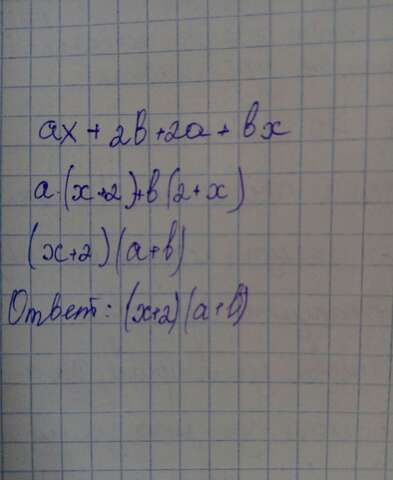 ax + 2b + 2a + bx
a·(x+2)+b(2+x)
(x+2)(a+b)
Ответ: (x+2)(a+b)